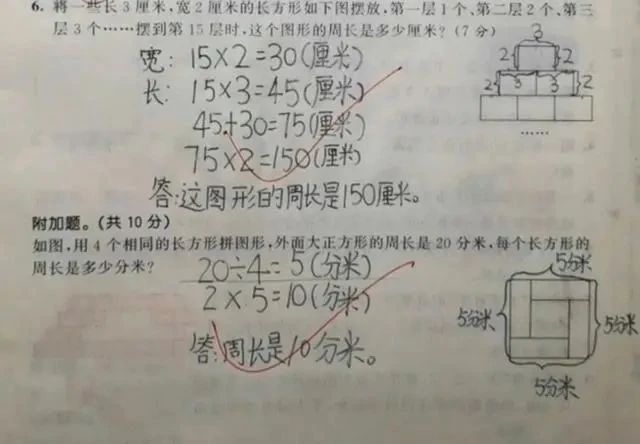 6. 将一些长 3 厘米,宽 2 厘米的长方形如下图摆放,第一层 1 个、第二层 2 个、第三
层 3 个……摆到第 15 层时,这个图形的周长是多少厘米?(7 分)
宽: 15×2=30(厘米)
长: 15×3=45(厘米)
45+30=75(厘米)
75×2=150(厘米)
答:这图形的周长是150厘米。
3
2 2
2 3 3 2
……
附加题。(共 10 分)
如图,用 4 个相同的长方形拼图形,外面大正方形的周长是 20 分米,每个长方形的
周长是多少分米?
20÷4=5(分米)
2×5=10(分米)
答:周长是10分米。
5分米
5分米 5分米
5分米